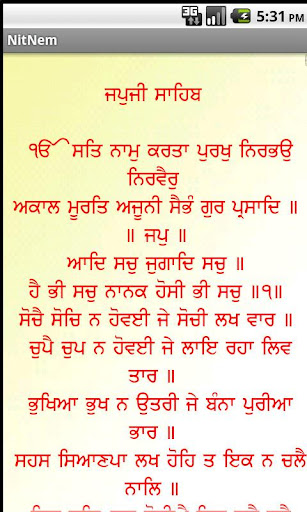 3G 5:31 PM
NitNem
ਜਪੁਜੀ ਸਾਹਿਬ
ੴ ਸਤਿ ਨਾਮੁ ਕਰਤਾ ਪੁਰਖੁ ਨਿਰਭਉ
ਨਿਰਵੈਰੁ
ਅਕਾਲ ਮੂਰਤਿ ਅਜੂਨੀ ਸੈਭੰ ਗੁਰ ਪ੍ਰਸਾਦਿ ॥
॥ ਜਪੁ ॥
ਆਦਿ ਸਚੁ ਜੁਗਾਦਿ ਸਚੁ ॥
ਹੈ ਭੀ ਸਚੁ ਨਾਨਕ ਹੋਸੀ ਭੀ ਸਚੁ ॥੧॥
ਸੋਚੈ ਸੋਚਿ ਨ ਹੋਵਈ ਜੇ ਸੋਚੀ ਲਖ ਵਾਰ ॥
ਚੁਪੈ ਚੁਪ ਨ ਹੋਵਈ ਜੇ ਲਾਇ ਰਹਾ ਲਿਵ
ਤਾਰ ॥
ਭੁਖਿਆ ਭੁਖ ਨ ਉਤਰੀ ਜੇ ਬੰਨਾ ਪੁਰੀਆ
ਭਾਰ ॥
ਸਹਸ ਸਿਆਣਪਾ ਲਖ ਹੋਹਿ ਤ ਇਕ ਨ ਚਲੈ
ਨਾਲਿ ॥